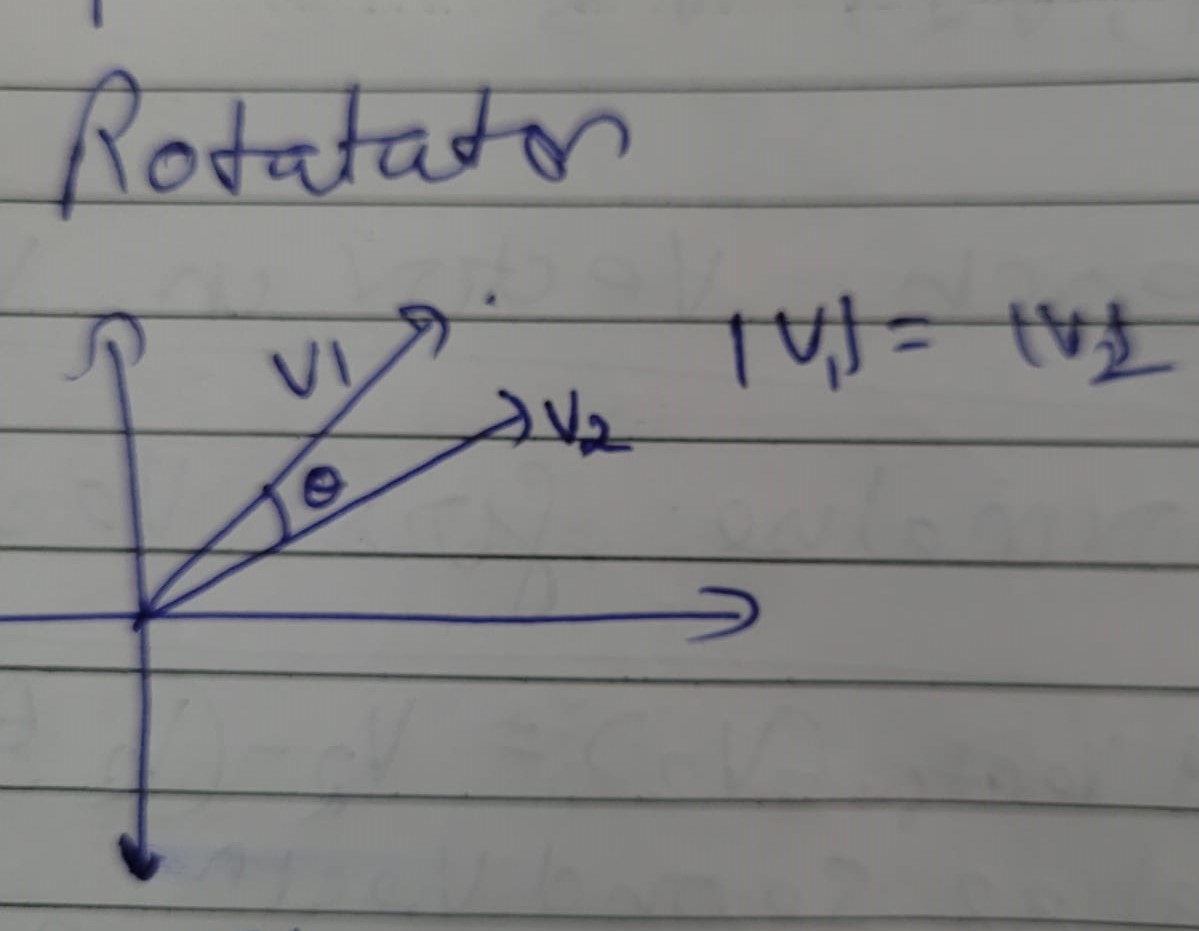 Rotatator
V1
|V₁| = |V₂|
V2
θ